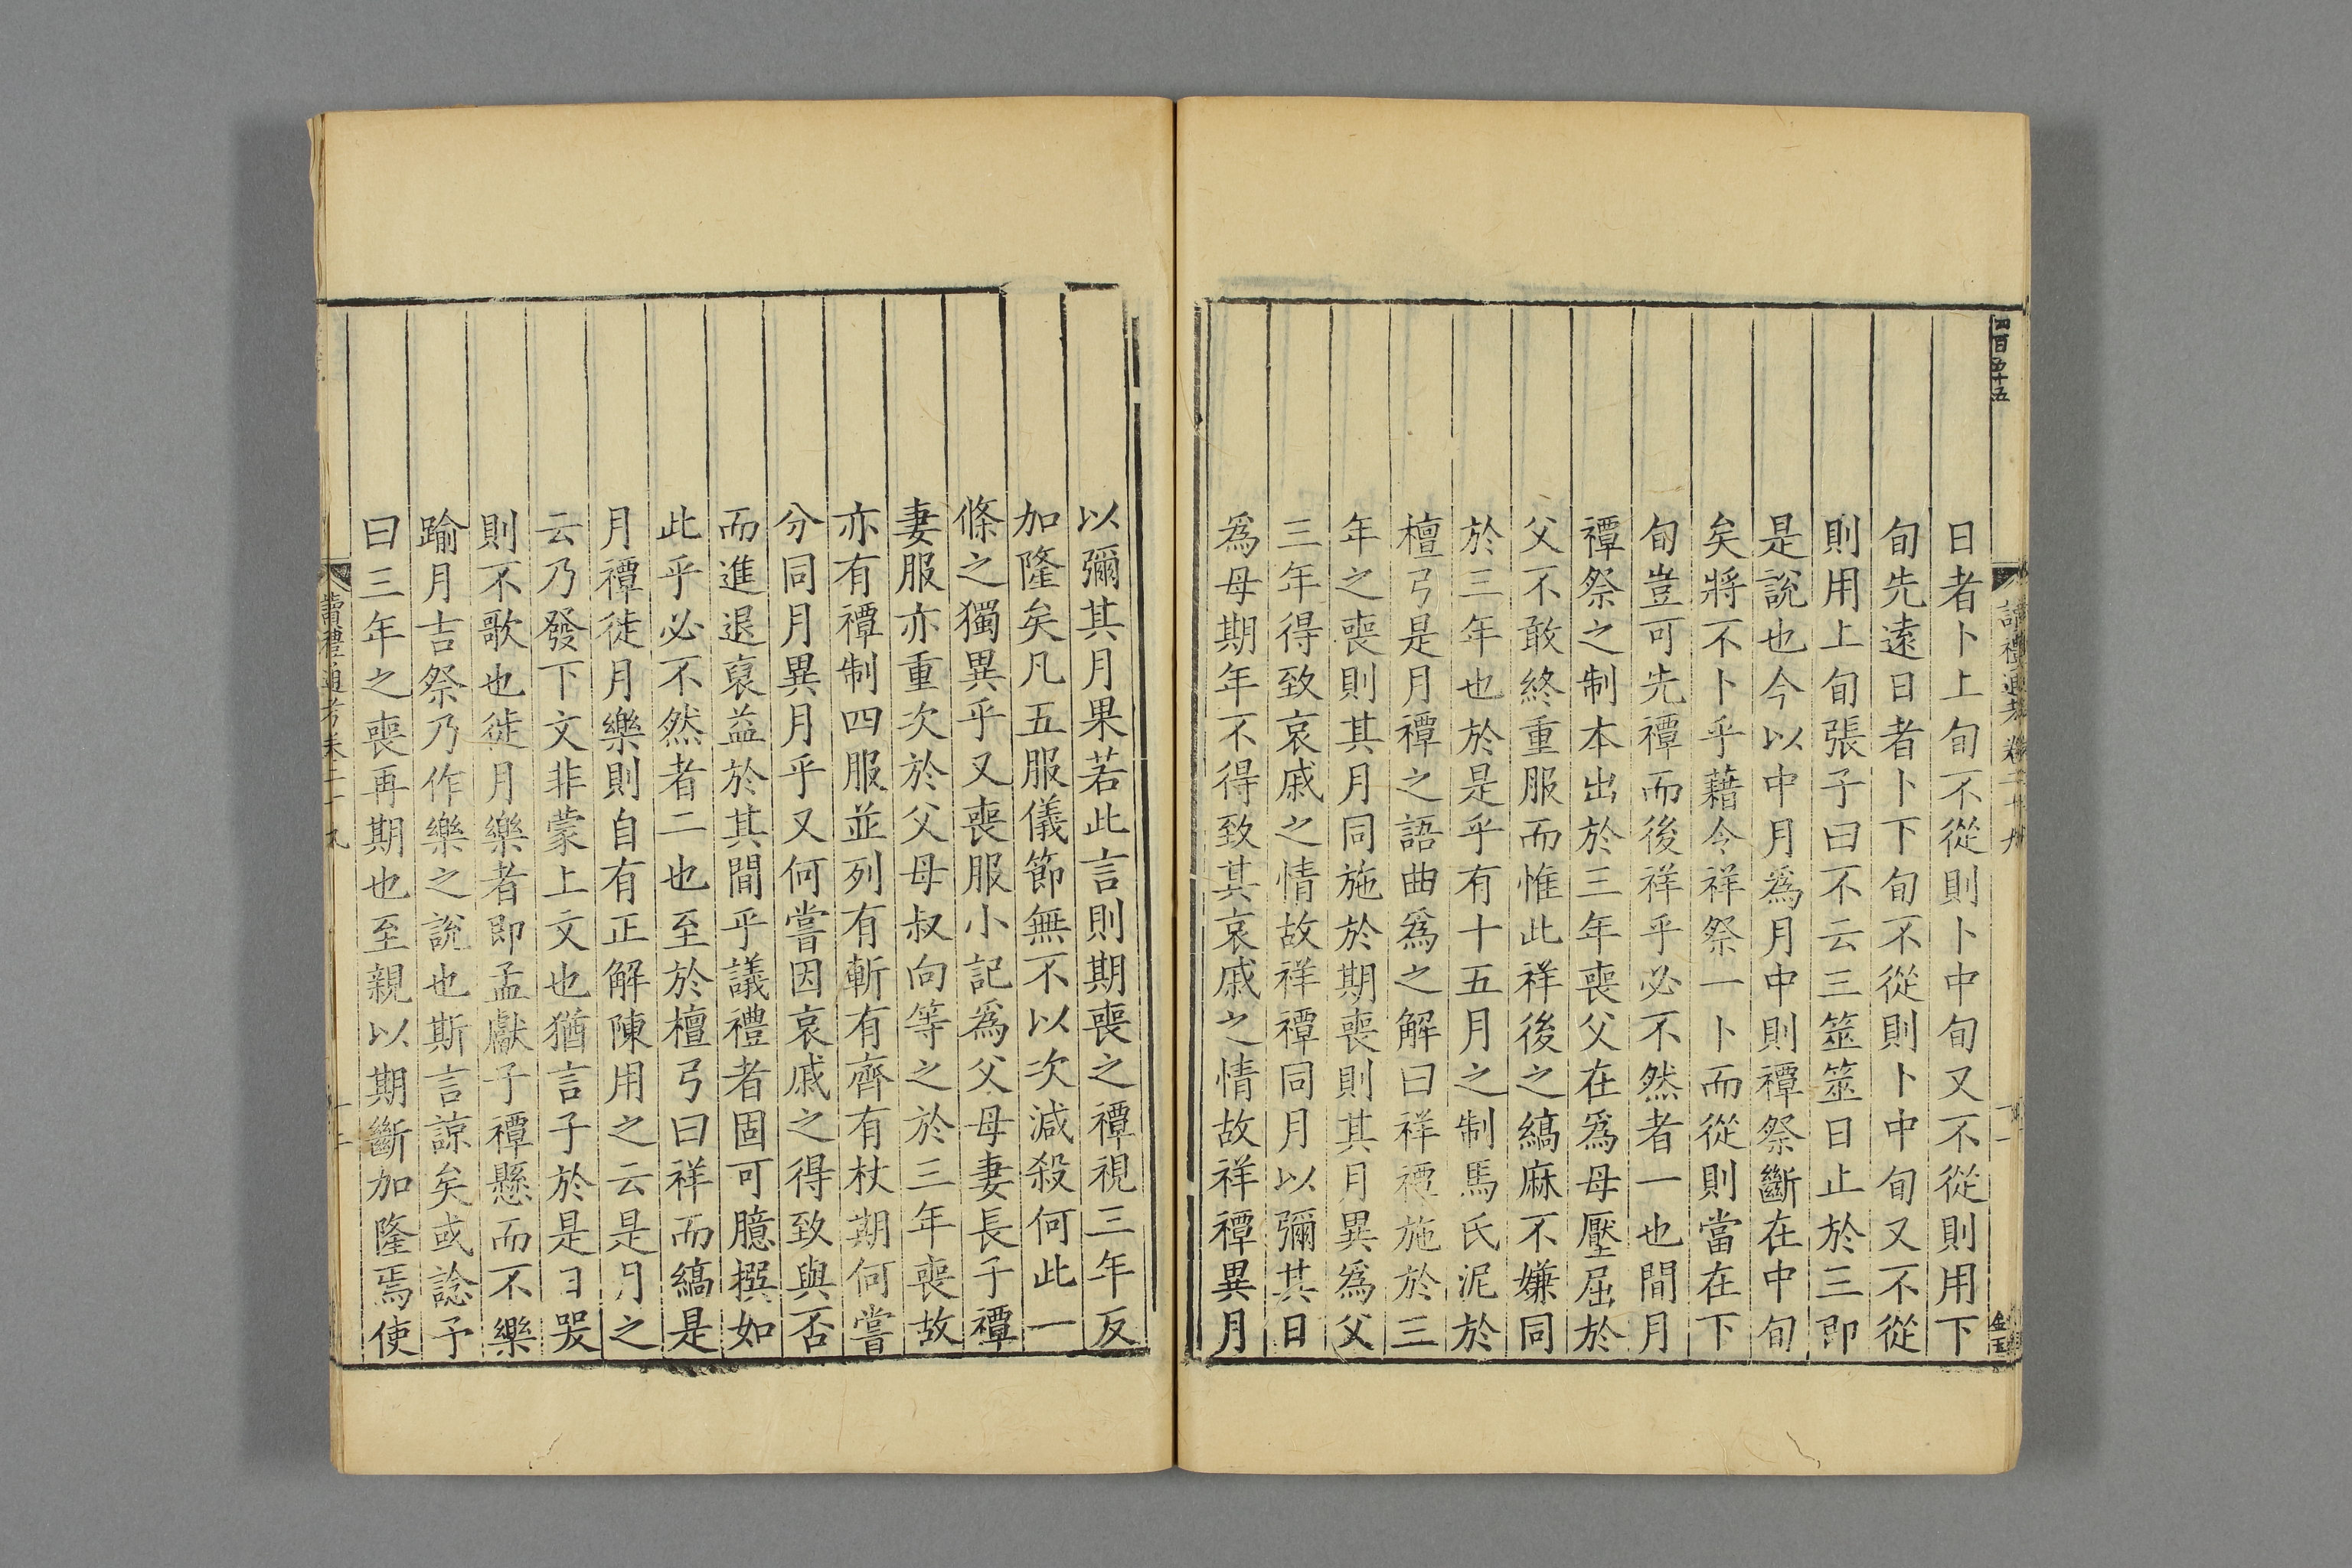 四百五十五
讀禮通考卷二十九
十一
金玉
日者卜上旬不從則卜中旬又不從則用下
旬先遠日者卜下旬不從則卜中旬又不從
則用上旬張子曰不云三筮筮日止於三即
是說也今以中月為月中則禫祭斷在中旬
矣將不卜乎藉令祥祭一卜而從則當在下
旬豈可先禫而後祥乎必不然者一也間月
禫祭之制本出於三年喪父在為母壓屈於
父不敢終重服而惟此祥後之縞麻不嫌同
於三年也於是乎有十五月之制馬氏泥於
檀弓是月禫之語曲為之解曰祥禫施於三
年之喪則其月同施於期喪則其月異為父
三年得致哀戚之情故祥禫同月以彌其日
為母期年不得致其哀戚之情故祥禫異月
以彌其月果若此言則期喪之禫視三年反
加隆矣凡五服儀節無不以次減殺何此一
條之獨異乎又喪服小記為父母妻長子禫
妻服亦重次於父母叔向等之於三年喪故
亦有禫制四服並列有斬有齊有杖期何嘗
分同月異月乎又何嘗因哀戚之得致與否
而進退裒益於其間乎議禮者固可臆撰如
此乎必不然者二也至於檀弓曰祥而縞是
月禫徙月樂則自有正解陳用之云是月之
云乃發下文非蒙上文也猶言子於是日哭
則不歌也徙月樂者即孟獻子禫懸而不樂
踰月吉祭乃作樂之說也斯言諒矣或諗予
曰三年之喪再期也至親以期斷加隆焉使
讀禮通考卷二十九